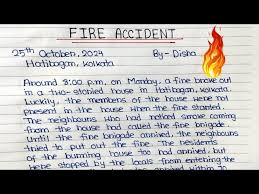 FIRE ACCIDENT
25th October, 2024 By- Disha
Hatibagan, Kolkata
Around 3:00 p.m. on Monday, a fire broke out
in a two-storied house in Hatibagan, Kolkata.
Luckily, the members of the house were not
present in the house when the fire started.
The neighbours who had noticed smoke coming
from the house had called the fire brigade.
Until the fire brigade arrived, the neighbours
tried to put out the fire. The residents
of the burning house too had arrived but
were stopped by the locals from entering the